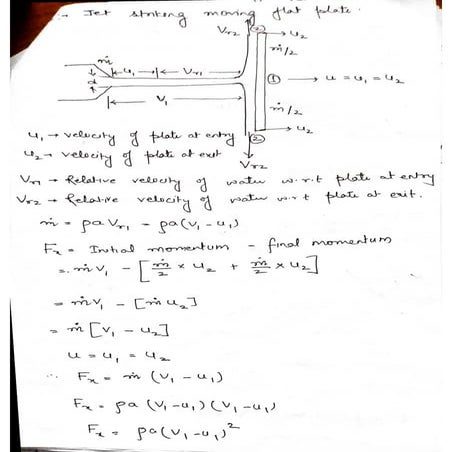 → Jet striking moving flat plate.
Vr2
②
→ u2
ṁ
ṁ/2
u1
Vr1
d
① → u = u1 = u2
V1
ṁ/2
→ u2
②
Vr2
u1 → velocity of plate at entry
u2 → velocity of plate at exit
Vr1 → Relative velocity of water w.r.t plate at entry
Vr2 → Relative velocity of water w.r.t plate at exit.
ṁ = ρaVr1 = ρa(V1 - u1)
Fx = Initial momentum - final momentum
= ṁV1 - [ṁ/2 × u2 + ṁ/2 × u2]
= ṁV1 - [ṁu2]
= ṁ[V1 - u2]
u = u1 = u2
∴ Fx = ṁ (V1 - u1)
Fx = ρa (V1 - u1) (V1 - u1)
Fx = ρa(V1 - u1)²